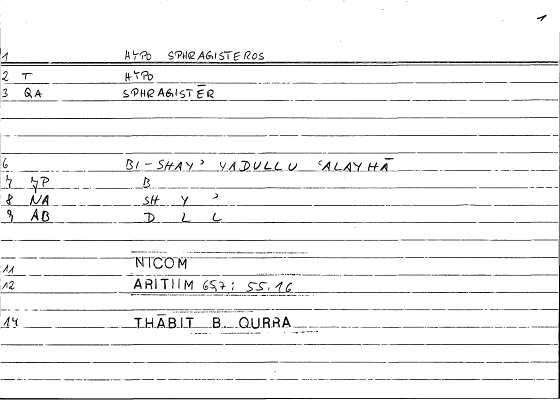 1
1 HYPO SPHRAGISTEROS
2 T HYPO
3 QA SPHRAGISTĒR
6 BI-SHAY' YADULLU 'ALAYHĀ
7 YP B
8 NA SH Y '
9 AB D L L
11 NICOM
12 ARITIIM 65,7: 55.16
14 THĀBIT B. QURRA